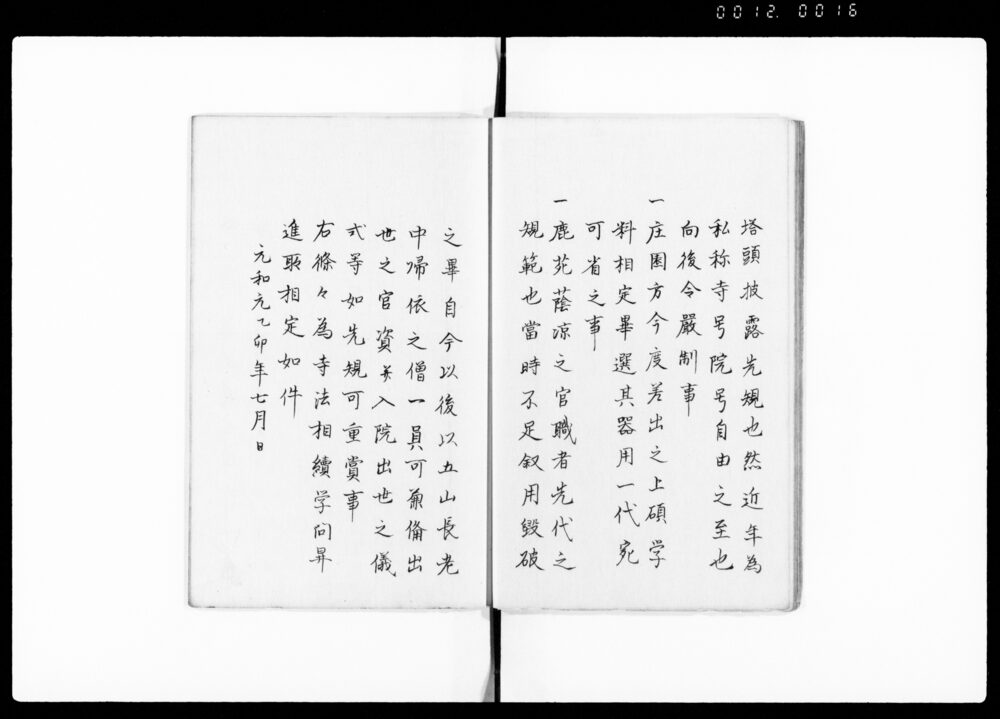 0012.0016
塔頭披露先規也然近年為
私称寺号院号自由之至也
向後令嚴制事
一庄園方今度差出之上碩学
料相定畢選其器用一代宛
可省之事
一鹿苑蔭凉之官職者先代之
規範也當時不足叙用毀破
之畢自今以後以五山長老
中帰依之僧一員可兼備出
世之官資并入院出世之儀
式等如先規可重賞事
右條々為寺法相續学问昇
進取相定如件
元和元乙卯年七月日